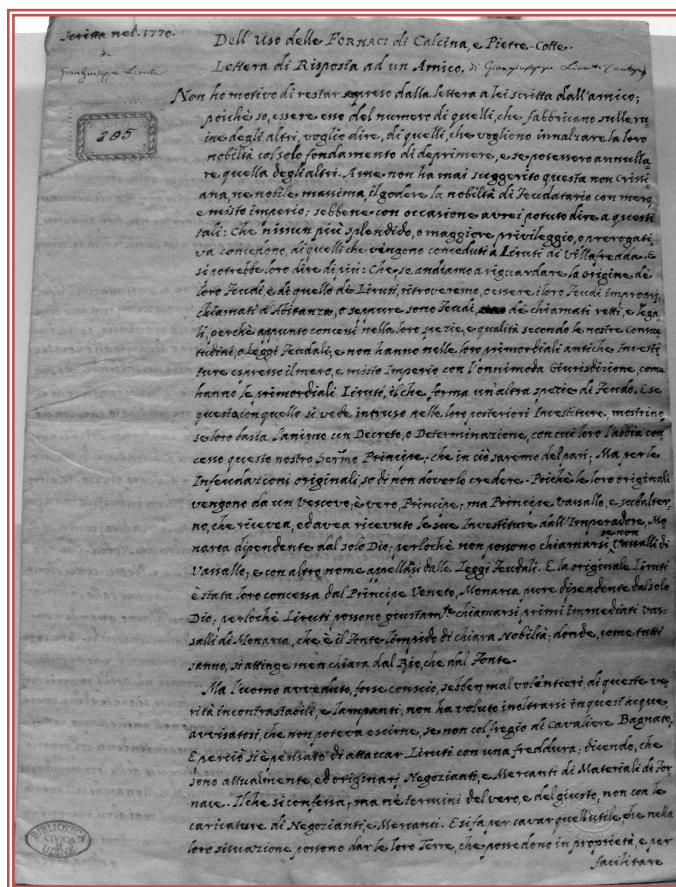 Scritta nel 1770.
di
Giangiuseppe Liruti
295
Dell'Uso delle FORNACI di Calcina, e Pietre-Cotte.
Lettera di Risposta ad un Amico, di Giangiuseppe Liruti
Non ho motivo di restar sorpreso dalla lettera a lei scritta dall'amico;
poichè so, essere eso del numero di quelli, che fabbricano sulle rui
ne degli altri, voglio dire, di quelli, che vogliono innalzare la loro
nobiltà col solo fondamento di deprimere, e se potessero annulla
re quella degli altri. A me non ha mai suggerito questa non Cristi-
ana, ne nobile massima, il godere la nobiltà di Feudatario con mero,
e misto imperio; sebbene con occasione avrei potuto dire a questi
tali: Che nissun più splendido, o maggiore privileggio, o prerogati
va concedono, di quelli che vengono conceduti a Liruti di Villafredda. E
si potrebbe loro dire di più: Che se andiamo a riguardare la origine de
loro Feudi, e di quello de Liruti, ritroveremo, o essere i loro Feudi improprj,
chiamati d'Abitanza, o seppure sono Feudi de chiamati retti, e lega
li, perchè appunto concessi nella loro spezie, e qualità secondo le nostre Consue
tudini, o Leggi Feudali, e non hanno nelle loro primordiali antiche Investi
ture espresso il mero, e misto Imperio con l'onnimoda Giurisdizione, come
hanno le primordiali Liruti, il che forma un'altra spezie di Feudo. E se
questa con quello si vede intruso nelle loro posteriori Investiture, mostrino
se loro basta l'animo un Decreto, o Determinazione, con cui loro l'abbia con
cesso questo nostro Sermo Principe, che in ciò saremo del pari; Ma per le
Infeudazioni originali, so di non doverlo credere. Poichè le loro originali
vengono da un Vescovo, è vero, Principe; ma Principe vassallo, e subalter-
no, che ricevea, ed avea ricevuto le sue Investiture dall'Imperadore, Mo
narca dipendente dal solo Dio; perlochè non possono chiamarsi se non Vassalli di
Vassallo, e con altro nome appellasi dalle Leggi Feudali. E la originale Liruti
è stata loro concessa dal Principe Veneto, Monarca pure dipendente dal solo
Dio; perlochè Liruti possono giustamte chiamarsi primi Immediati vas-
salli di Monarca, che è il Fonte limpido di chiara Nobiltà; donde, come tutti
sanno, si attinge men chiara dal Rio, che dal Fonte.
Ma l'uomo avveduto, forse conscio, sebben mal volentieri, di queste ve-
rità incontrastabili, e lampanti, non ha voluto inoltrarsi in quest'acque,
avvisatosi, che non poteva escirne, se non col fregio di Cavaliere Bagnato,
E perciò si è pensato di attaccar Liruti con una freddura; dicendo, che
sono attualmente, ed originarj Negozianti, e Mercanti di Materiali di For
nace. Il che si confessa, ma nè termini del vero, e del giusto, non con le
caricature di Negozianti, e Mercanti. E si fa per cavar quell'utile, che nella
loro situazione possono dar le loro Terre, che possedono in proprietà, e per
facilitare
BIBLIOTECA
CIVICA
UDINE